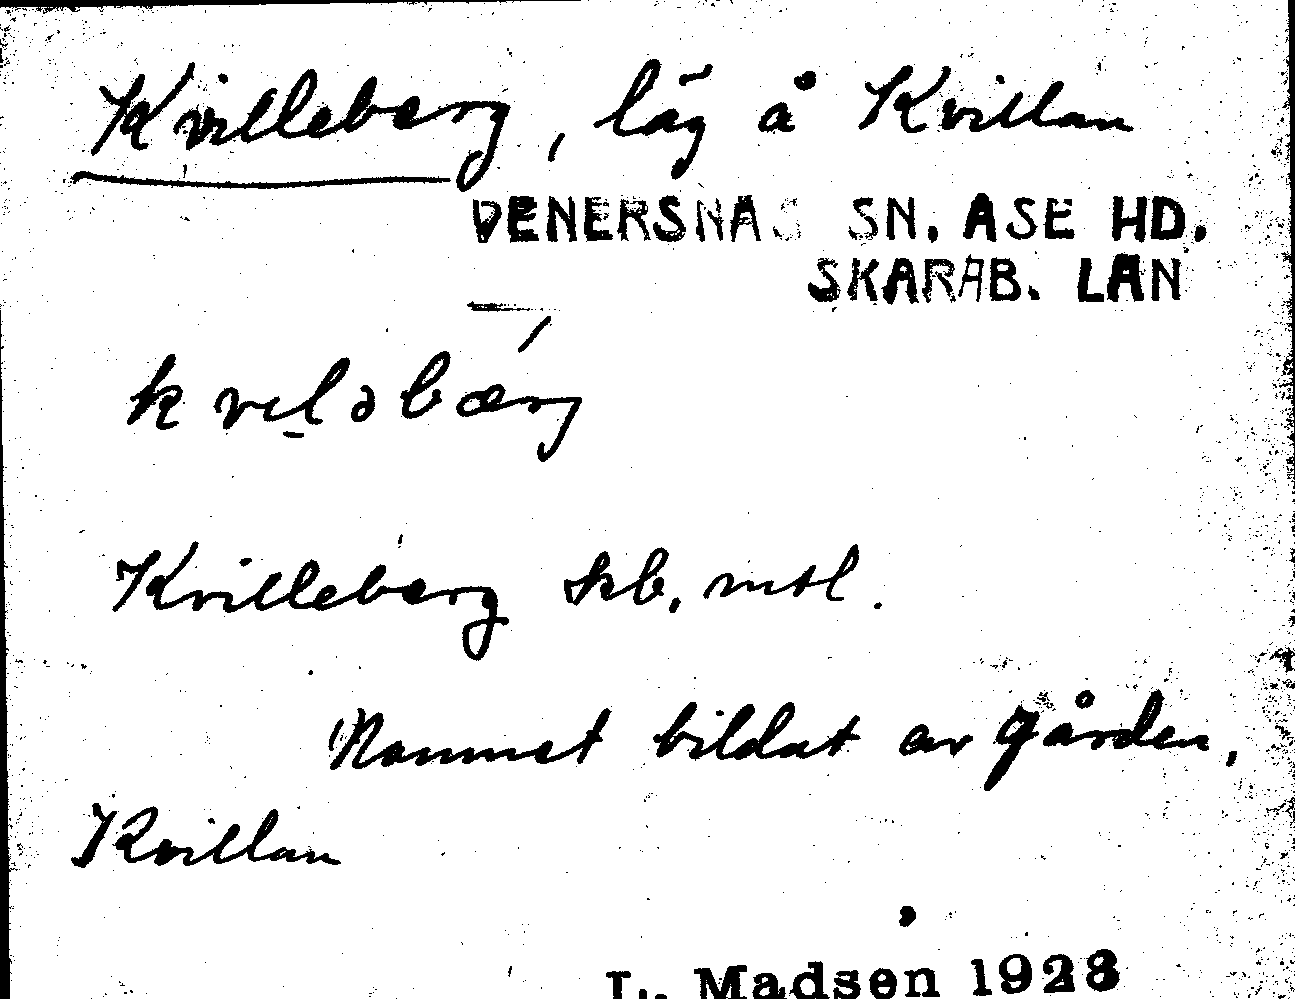 Kvilleberg, lāg å Kvillan
VENERSNAS SN. ASE HD.
SKARAB. LAN
kvɩləbærg
Kvilleberg skb, mtl.
Namnet bildat av gården,
Kvillan
L. Madsen 1923